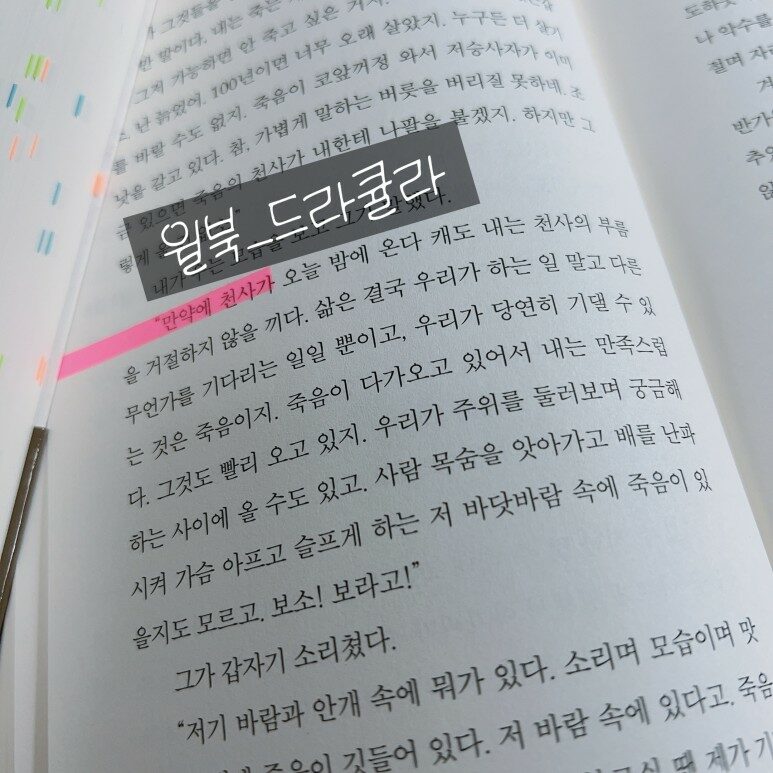 그것들을
한 말이다. 내는 죽는
그저 가능하면 안 죽고 싶은 거지.
난 늙었어. 100년이면 너무 오래 살았지. 누구든 더 살기
를 바랄 수도 없지. 죽음이 코앞꺼정 와서 저승사자가 이미
낫을 갈고 있다. 참, 가볍게 말하는 버릇을 버리질 못하네. 조
금 있으면 죽음의 천사가 내한테 나팔을 불겠지. 하지만 그
렇게
윌북_드라큘라
내가 우는 모습을 보고 그가 말했다.
“만약에 천사가 오늘 밤에 온다 캐도 내는 천사의 부름
을 거절하지 않을 끼다. 삶은 결국 우리가 하는 일 말고 다른
무언가를 기다리는 일일 뿐이고, 우리가 당연히 기댈 수 있
는 것은 죽음이지. 죽음이 다가오고 있어서 내는 만족스럽
다. 그것도 빨리 오고 있지. 우리가 주위를 둘러보며 궁금해
하는 사이에 올 수도 있고. 사람 목숨을 앗아가고 배를 난파
시켜 가슴 아프고 슬프게 하는 저 바닷바람 속에 죽음이 있
을지도 모르고. 보소! 보라고!”
그가 갑자기 소리쳤다.
“저기 바람과 안개 속에 뭐가 있다. 소리며 모습이며 맛
죽음이 깃들어 있다. 저 바람 속에 있다고. 죽음
때 제가 기
나 악수를
칠며 자
반가
추억